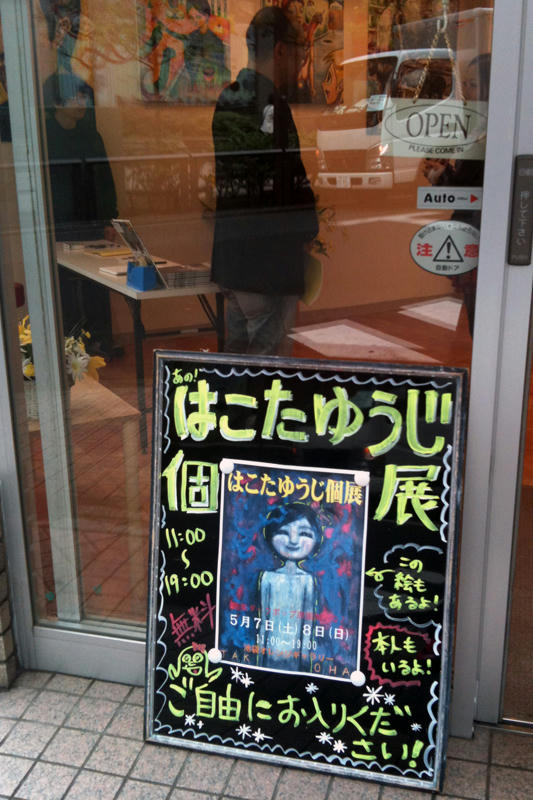 OPEN
PLEASE COME IN
Auto
注意
自動ドア
押して下さい
あの!
はこたゆうじ
個展
11:00
～
19:00
無料
はこたゆうじ個展
5月7日(土)8日(日)
11:00～19:00
この
絵も
あるよ!
本人も
いるよ!
ご自由にお入りくだ
さい!